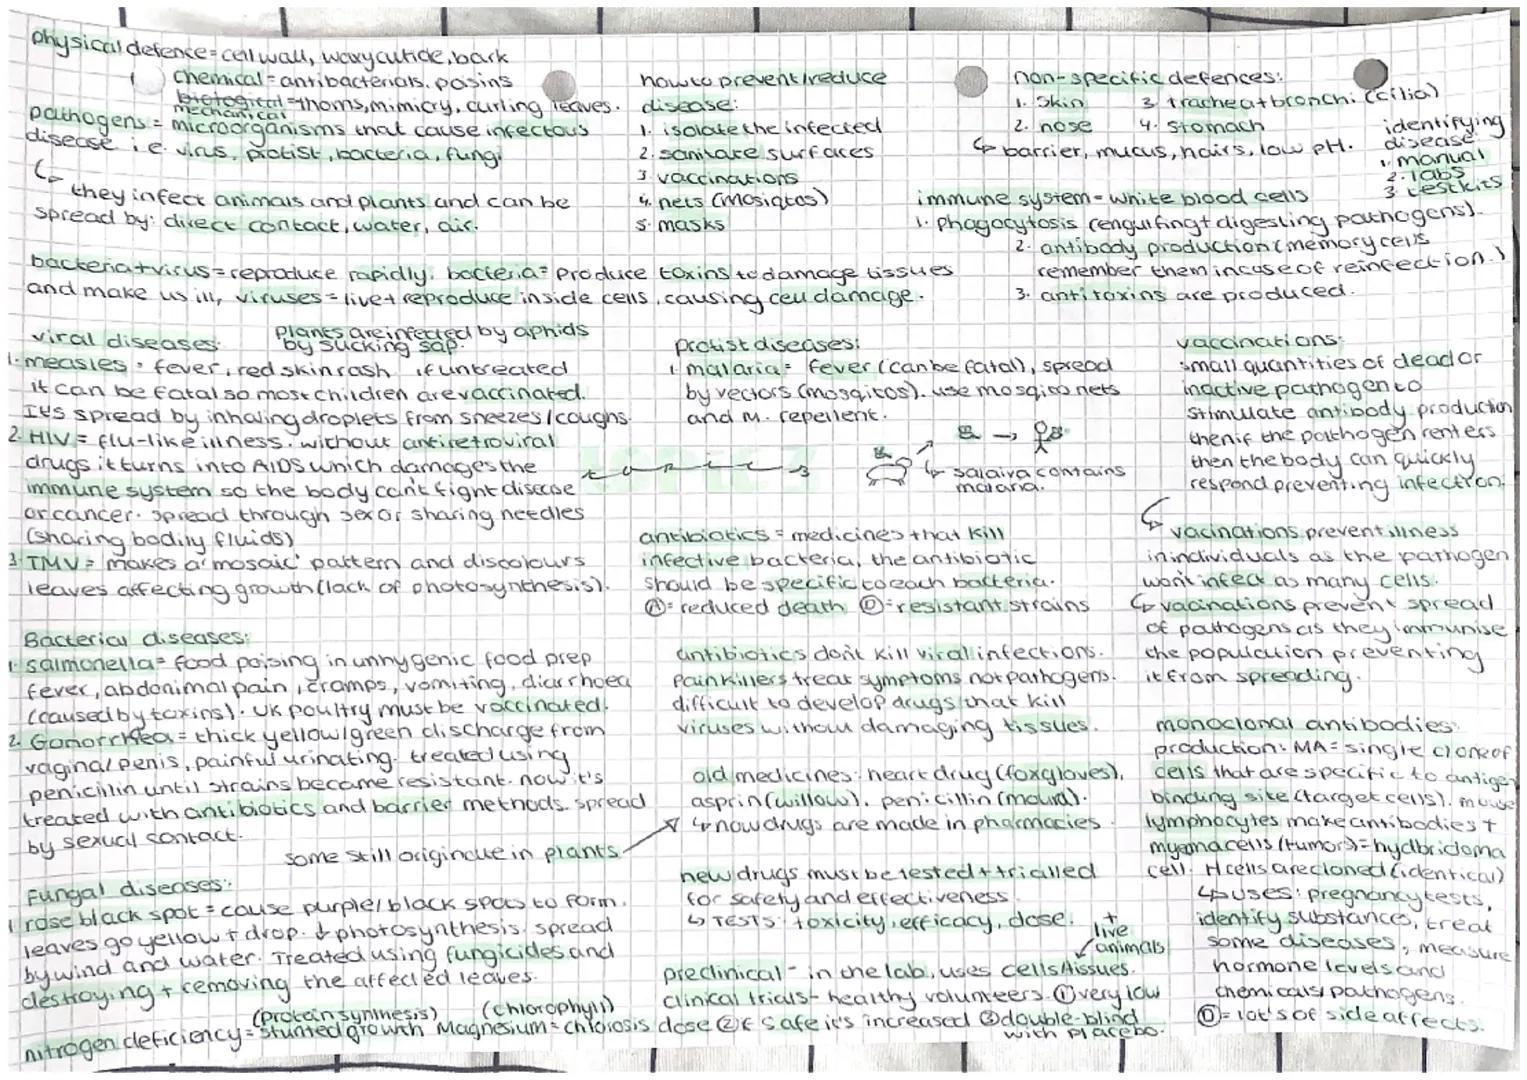 physical defence = cell wall, waxy cuticle, bark
chemical = antibacterials, poisins
biological = thorns, mimicry, curling leaves.
mechanical
pathogens = microorganisms that cause infectous
disease i.e. virus, protist, bacteria, fungi
they infect animals and plants and can be
spread by: direct contact, water, air.
how to prevent/reduce
disease:
1. isolate the infected
2. sanitare surfaces
3. vaccinations
4. nets (mosiqtos)
5. masks
non-specific defences:
1. skin 3. trachea + bronchi (cilia)
2. nose 4. stomach
barrier, mucus, hairs, low pH.
identifying
disease
1. manual
2. labs
3. test kits
immune system = white blood cells
1. phagocytosis (engulfing + digesting pathogens).
2. antibody production (memory cells
remember them incase of reinfection.)
3. antitoxins are produced.
bacteria + virus = reproduce rapidly. bacteria = produce toxins to damage tissues
and make us ill, viruses = live + reproduce inside cells, causing cell damage.
viral diseases:
plants are infected by aphids
by sucking sap.
1. measles = fever, red skin rash, if untreated
it can be fatal so most children are vaccinated.
It's spread by inhaling droplets from sneezes/coughs.
2. HIV = flu-like illness. without antiretroviral
drugs it turns into AIDS which damages the
immune system so the body can't fight disease
or cancer. spread through sex or sharing needles
(sharing bodily fluids)
3. TMV = makes a 'mosaic' pattern and discolours
leaves affecting growth (lack of photosynthesis).
Bacterial diseases:
1. salmonella = food poising in unhygenic food prep
fever, abdonimal pain, cramps, vomiting, diarrhoea
(caused by toxins). UK poultry must be vaccinated.
2. Gonorrhea = thick yellow/green discharge from
vagina/penis, painful urinating. treated using
penicillin until strains became resistant. now it's
treated with antibiotics and barrier methods. spread
by sexual contact.
Fungal diseases:
1. rose black spot = cause purple/black spots to form.
leaves go yellow + drop. ↓ photosynthesis. spread
by wind and water. Treated using fungicides and
destroying + removing the affected leaves.
(protein synthesis) (chlorophyll)
nitrogen deficiency = stunted growth Magnesium = chlorosis
protist diseases:
1. malaria = fever (can be fatal), spread
by vectors (mosqitos). use mosqito nets
and m. repellent.
salaiva contains
malaria.
topic 3
antibiotics = medicines that kill
infective bacteria, the antibiotic
should be specific to each bacteria.
(A) = reduced death (D) = resistant strains
antibiotics don't kill viral infections.
painkillers treat symptoms not pathogens.
difficult to develop drugs that kill
viruses without damaging tissues.
old medicines: heart drug (foxgloves),
asprin (willow), penicillin (mould).
now drugs are made in pharmacies
some still originate in plants
new drugs must be tested + trialled
for safety and effectiveness
TESTS: toxicity, efficacy, dose.
+
live
animals
preclinical - in the lab, uses cells/tissues.
clinical trials - healthy volunteers. ① very low
dose ② if safe it's increased ③ double-blind
with placebo.
vaccinations:
small quantities of dead or
inactive pathogen to
stimulate antibody production
then if the pathogen renters
then the body can quickly
respond preventing infection.
vacinations prevent illness
in individuals as the pathogen
won't infect as many cells.
vacinations prevent spread
of pathogens as they immunise
the population preventing
it from spreading.
monoclonal antibodies:
production: MA = single clone of
cells that are specific to antigen
binding site (target cells). mouse
lymphocytes make antibodies +
cells (tumors) = hydbridoma
cell. H cells are cloned (identical)
uses: pregnancy tests,
identify substances, treat
some diseases, measure
hormone levels and
chemicals/pathogens.
(D) = lot's of side affects.